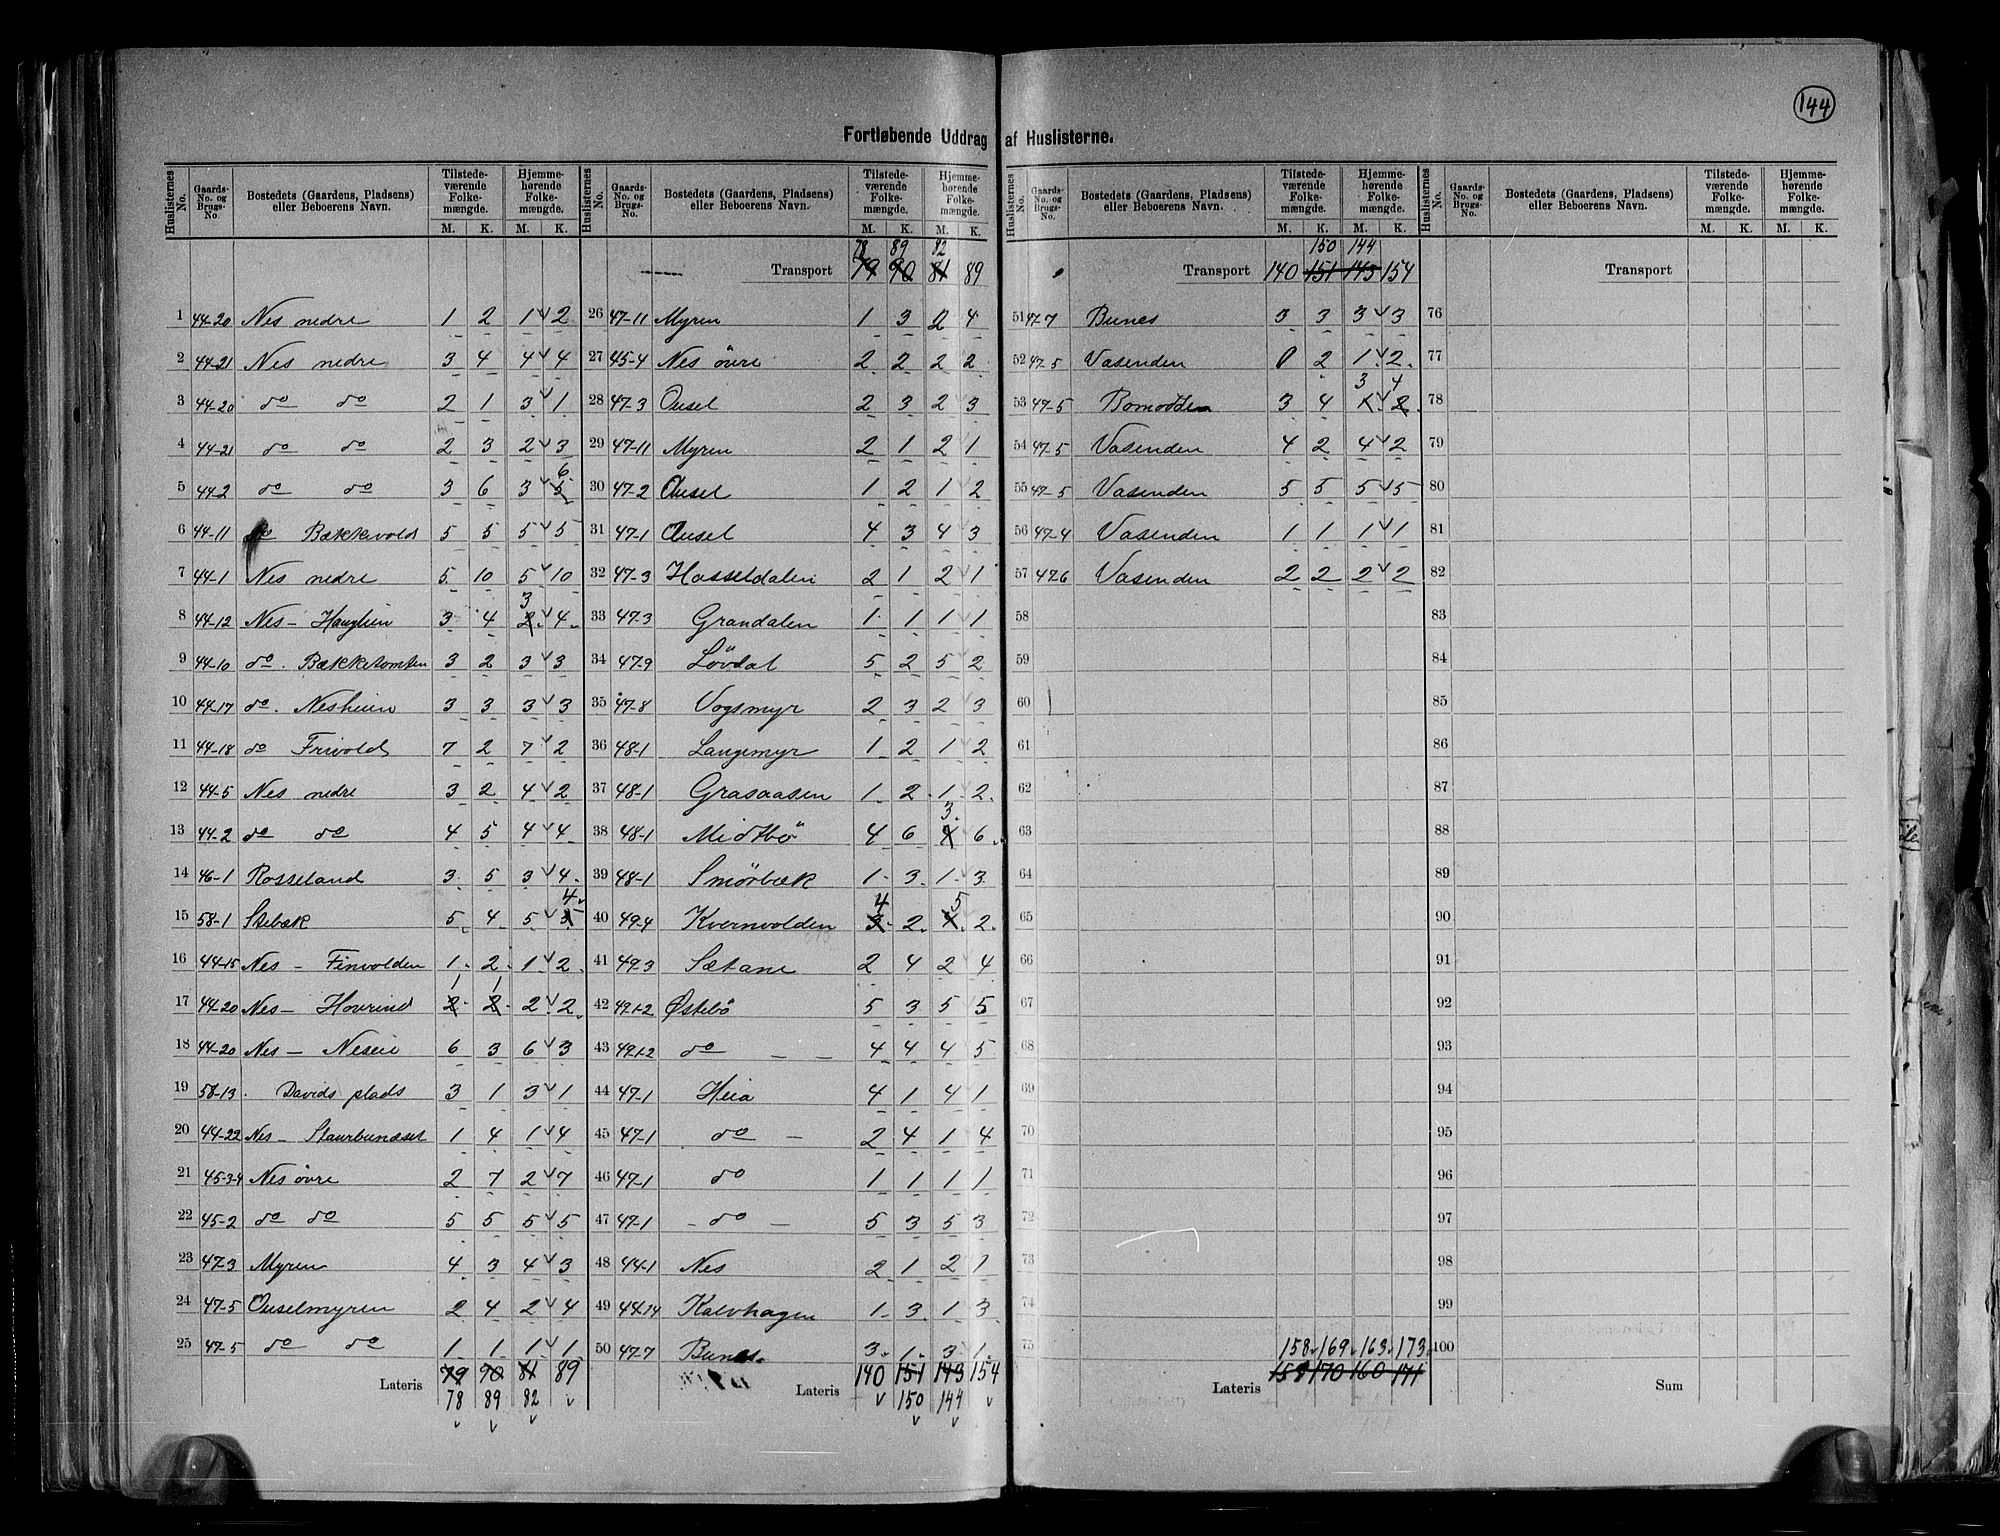 144
Fortløbende Uddrag af Huslisterne.
Huslisternes No. Gaards-No. og Brugs-No. Bostedets (Gaardens, Pladsens) eller Beboerens Navn. Tilstedeværende Folkemængde. M. K. Hjemmehørende Folkemængde. M. K.
1 44-20 Nes nedre 1 2 1 2
2 44-21 Nes nedre 3 4 4 4
3 44-20 do do 2 1 3 1
4 44-21 do do 2 3 2 3
5 44-2 do do 3 6 3 5 6
6 44-11 do Bækkevold 5 5 5 5
7 44-1 Nes nedre 5 10 5 10
8 44-12 Nes - Hauglien 3 4 2 3 4
9 44-10 do. Bækketomten 3 2 3 3
10 44-17 do. Nesheim 3 3 3 3
11 44-18 do Frivold 7 2 7 2
12 44-5 Nes nedre 3 2 4 2
13 44-2 do do 4 5 4 4
14 46-1 Rosseland 3 5 3 4
15 58-1 Stebæk 5 4 5 3 4
16 44-15 Nes - Finvolden 1 2 1 2
17 44-20 Nes - Hovrind 2 1 2 1 2 2
18 44-20 Nes - Neseie 6 3 6 3
19 58-13. Davids plads 3 1 3 1
20 44-22 Nes - Staurbundset 1 4 1 4
21 45-3-4 Nes övre 2 7 2 7
22 45-2 do do 5 5 5 5
23 47-3 Myren 4 3 4 3
24 47-5 Ouselmyren 2 4 2 4
25 47-5 do do 1 1 1 1
Lateris 79 90 81 89
78 89 82
Huslisternes No. Gaards-No. og Brugs-No. Bostedets (Gaardens, Pladsens) eller Beboerens Navn. Tilstedeværende Folkemængde. M. K. Hjemmehørende Folkemængde. M. K.
78 89 82
Transport 79 90 81 89
26 47-11 Myren 1 3 2 4
27 45-4 Nes övre 2 2 2 2
28 47-3 Ousel 2 3 2 3
29 47-11 Myren 2 1 2 1
30 47-2 Ousel 1 2 1 2
31 47-1 Ousel 4 3 4 3
32 47-3 Hasseldalen 2 1 2 1
33 47-3 Grandalen 1 1 1 1
34 47-9 Lövdal 5 2 5 2
35 47-8 Vogsmyr 2 3 2 3
36 48-1 Langemyr 1 2 1 2
37 48-1 Grasaasen 1 2 1 2
38 48-1 Midtbö 4 6 4 3 6
39 48-1 Smörbæk 1 3 1 3
40 49-4 Kvernvolden 3 4 2 4 5 2
41 49-3 Sætane 2 4 2 4
42 49-1-2 Østebö 5 3 5 5
43 49-1-2 do - - 4 4 4 5
44 47-1 Heia 4 1 4 1
45 47-1 do - 2 4 1 4
46 47-1 do 1 1 1 1
47 47-1 - do - 5 3 5 3
48 44-1 Nes 2 1 2 1
49 44-14 Kalvhagen 1 3 1 3
50 47-7 Bunes. 3 1 3 1
Lateris 140 151 143 154
150 144
Huslisternes No. Gaards-No. og Brugs-No. Bostedets (Gaardens, Pladsens) eller Beboerens Navn. Tilstedeværende Folkemængde. M. K. Hjemmehørende Folkemængde. M. K.
150 144
Transport 140 151 143 154
51 47-7 Bunes 3 3 3 3
52 47-5 Vasenden 0 2 1 2
53 47-5 Bomodden 3 4 3 2 4
54 47-5 Vasenden 4 2 4 2
55 47-5 Vasenden 5 5 5 5
56 47-4 Vasenden 1 1 1 1
57 47-6 Vasenden 2 2 2 2
58
59
60
61
62
63
64
65
66
67
68
69
70
71
72
73
74
75 158 169 163 173
Lateris 158 170 160 171
Huslisternes No. Gaards-No. og Brugs-No. Bostedets (Gaardens, Pladsens) eller Beboerens Navn. Tilstedeværende Folkemængde. M. K. Hjemmehørende Folkemængde. M. K.
Transport
76
77
78
79
80
81
82
83
84
85
86
87
88
89
90
91
92
93
94
95
96
97
98
99
100
Sum